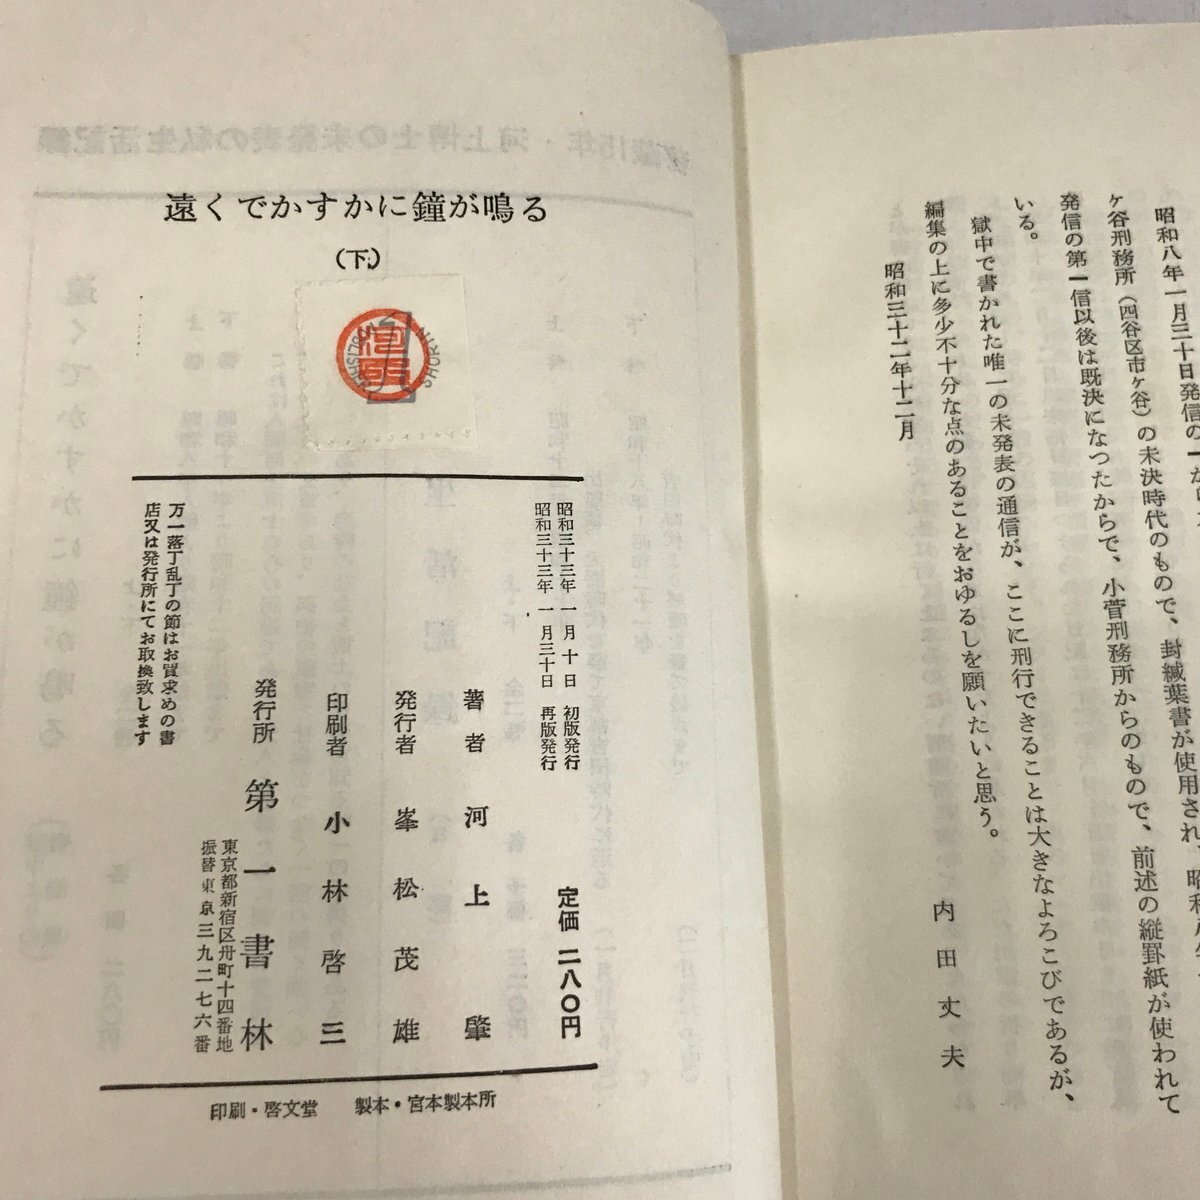 昭和八年一月三十日発信の
ケ谷刑務所（四谷区市ケ谷）の未決時代のもので、封緘葉書が使用され、昭和
発信の第一信以後は既決になつたからで、小菅刑務所からのもので、前述の縦罫紙が使われて
いる。
獄中で書かれた唯一の未発表の通信が、ここに刊行できることは大きなよろこびであるが、
編集の上に多少不十分な点のあることをおゆるしを願いたいと思う。
昭和三十二年十二月
内田丈夫
遠くでかすかに鐘が鳴る
（下）
昭和三十三年一月十日 初版発行
昭和三十三年一月三十日 再版発行
定価 二八〇円
著者 河上肇
発行者 峯松茂雄
印刷者 小林啓三
発行所 第一書林
東京都新宿区舟町十四番地
振替東京三九二七六番
万一落丁乱丁の節はお買求めの書
店又は発行所にてお取換致します
印刷・啓文堂 製本・宮本製本所